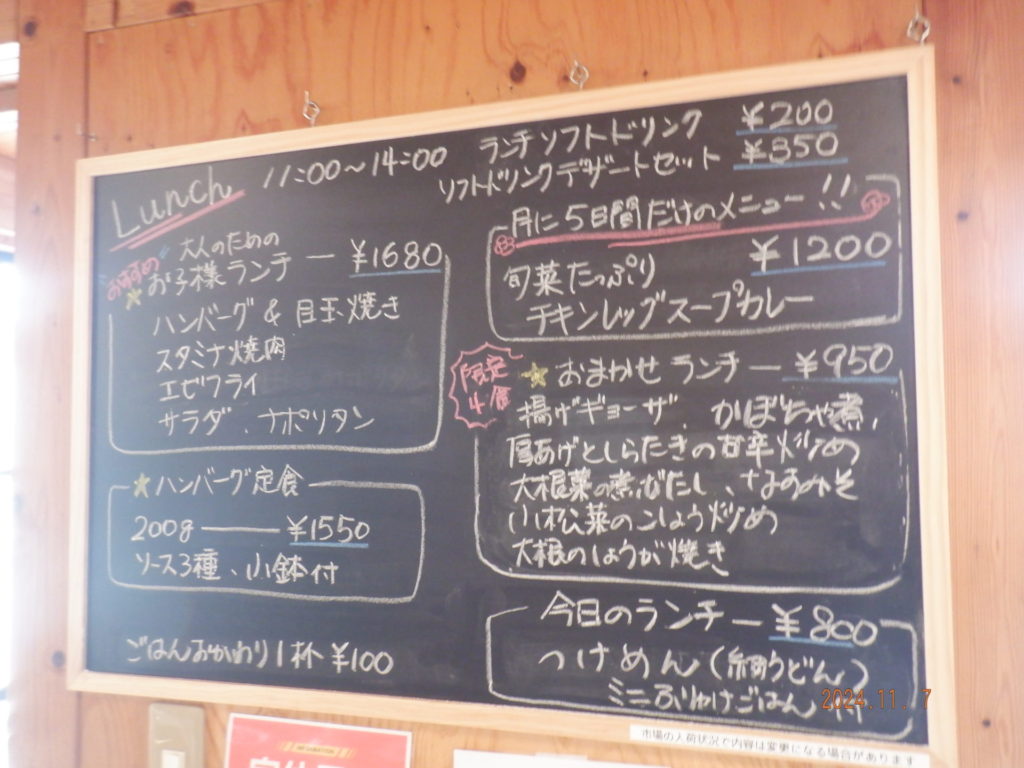 Lunch 11:00～14:00
ランチソフトドリンク ¥200
ソフトドリンクデザートセット ¥350
おすすめ
大人のための
お子様ランチ ― ¥1680
ハンバーグ & 目玉焼き
スタミナ焼肉
エビフライ
サラダ、ナポリタン
★ハンバーグ定食
200g ― ¥1550
ソース3種、小鉢付
ごはんおかわり1杯 ¥100
月に5日間だけのメニュー!!
¥1200
旬菜たっぷり
チキンレッグスープカレー
限定
4食
★おまかせランチ ― ¥950
揚げギョーザ、かぼちゃ煮、
厚あげとしらたきの甘辛炒め
大根葉の煮びたし、なすみそ
小松菜のこしょう炒め
大根のしょうが焼き
今日のランチ ― ¥800
つけめん(細うどん)
ミニふりかけごはん 付
2024.11. 7
市場の入荷状況で内容は変更になる場合があります
INFORMATION